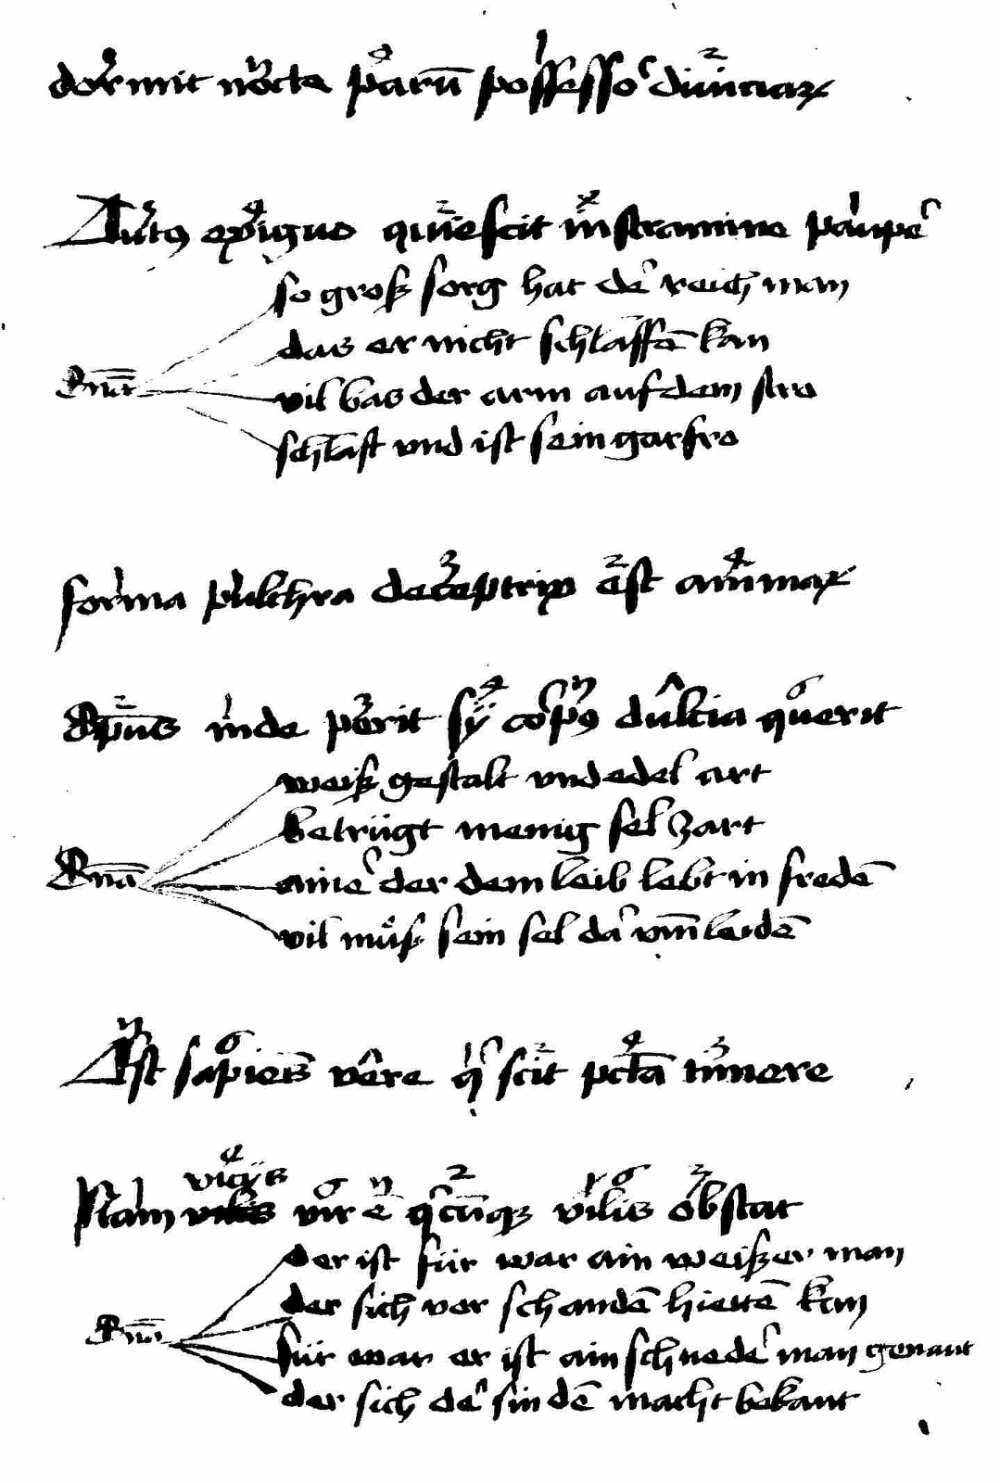 dormit nocte parū possessor diuiciaꝝ
Artꝰ exiguo quiescit in stramine paupeʳ
so groß sorg hat deʳ reich man
das er nicht schlaffē kan
vil bas der arm auf dem stro
schlaft vnd ist sein gar fro
forma pulchra deceptrix est animaꝝ
Spūs inde perit si corpꝰ dulcia querit
weiß gestalt vnd edel art
betriigt menig sel zart
aineʳ der dem leib lebt in fredē
vil muͦß sein sel daʳ vm̄ leidē
Est sapiens vere qͥ scit pctā timere
Nam vicijs vir ē qͥcūqꝫ vilis obstat
der ist für war ain weißer man
der sich vor schandē hiettē kan
für war er ist ain schnedeʳ man genant
der sich deʳ sindē macht bekant